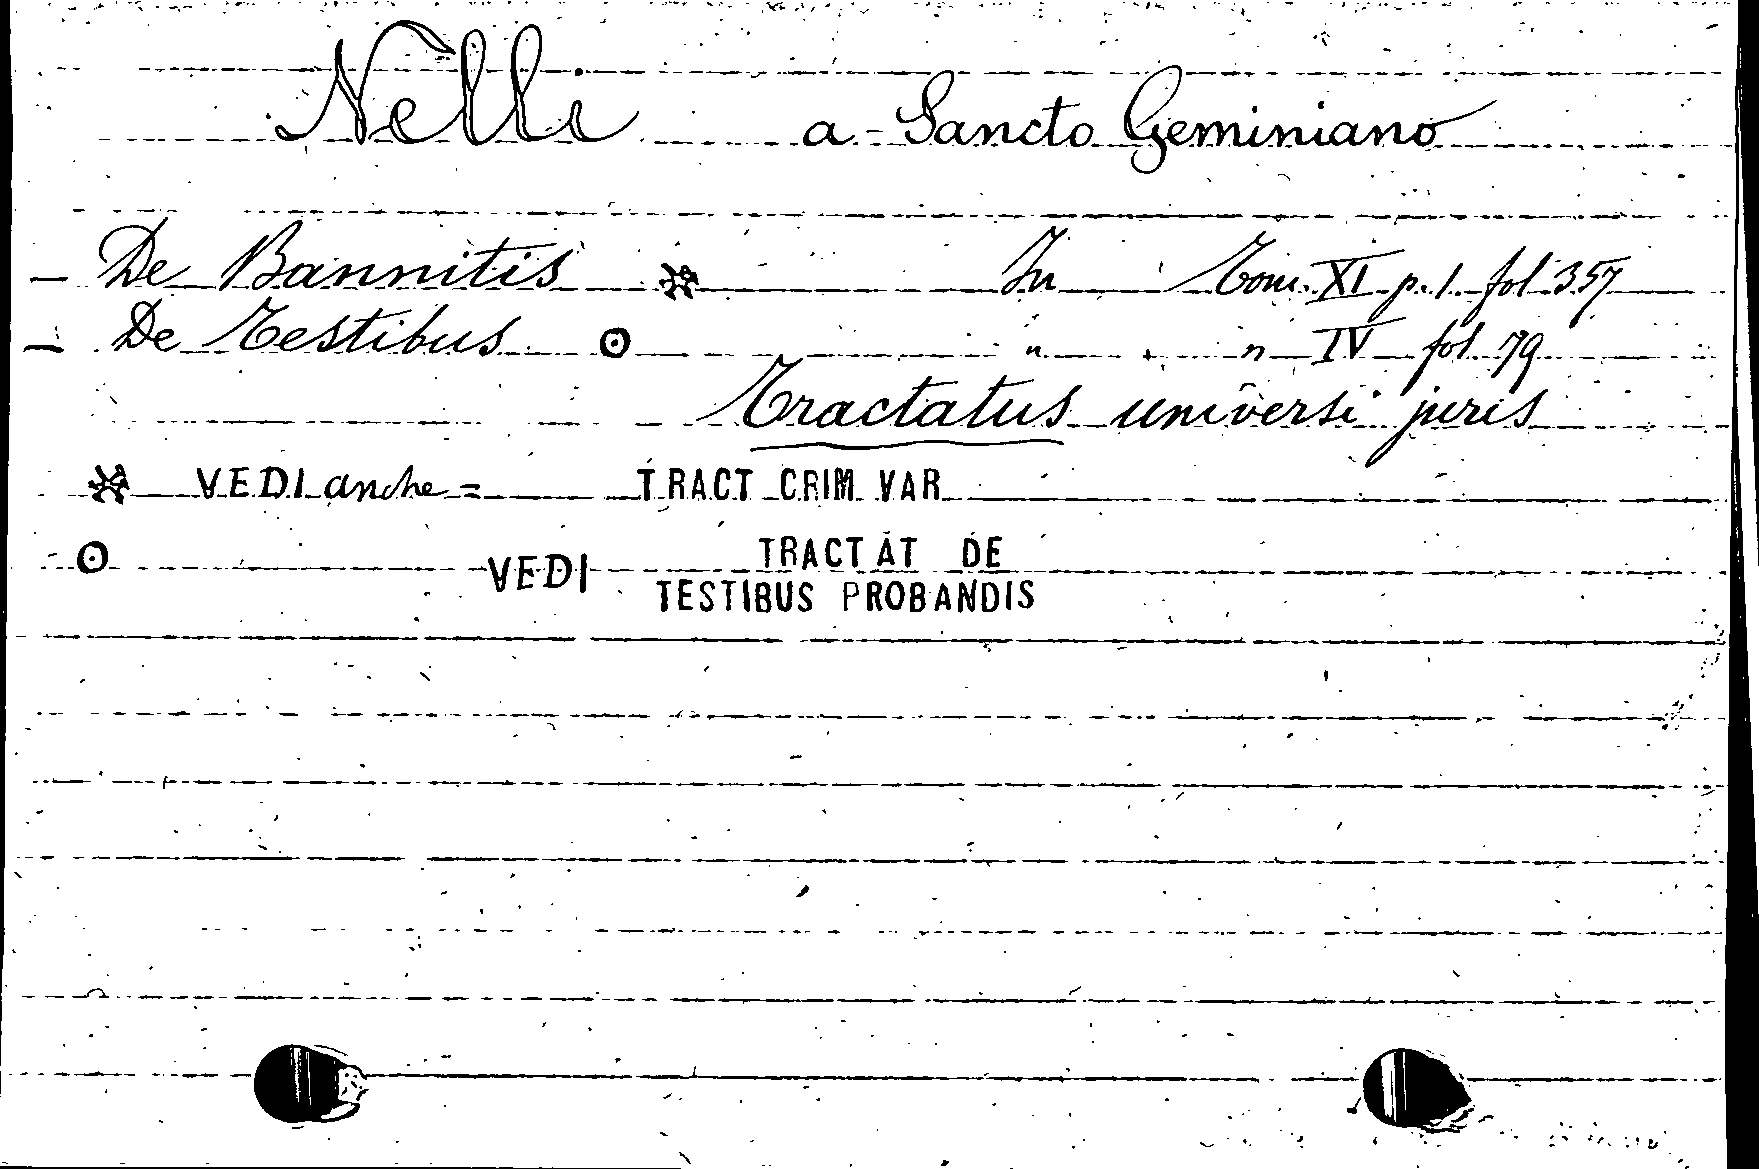 Nelli a Sancto Geminiano
- De Bannitis ※ In Tom. XI p. 1. fol 357
- De Testibus ⊙ " " IV fol. 79
Tractatus universi juris
※ VEDI anche = TRACT CRIM VAR
⊙ VEDI TRACTAT DE
TESTIBUS PROBANDIS